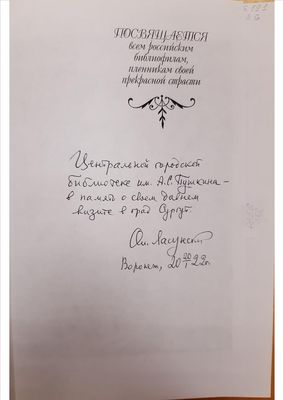 ПОСВЯЩАЕТСЯ
всем российским
библиофилам,
пленникам своей
прекрасной страсти
Центральной городской
библиотеке им. А.С. Пушкина –
в память о своем давнем
визите в град Сургут.
Ол. Ласунский
Воронеж, 20 22г.